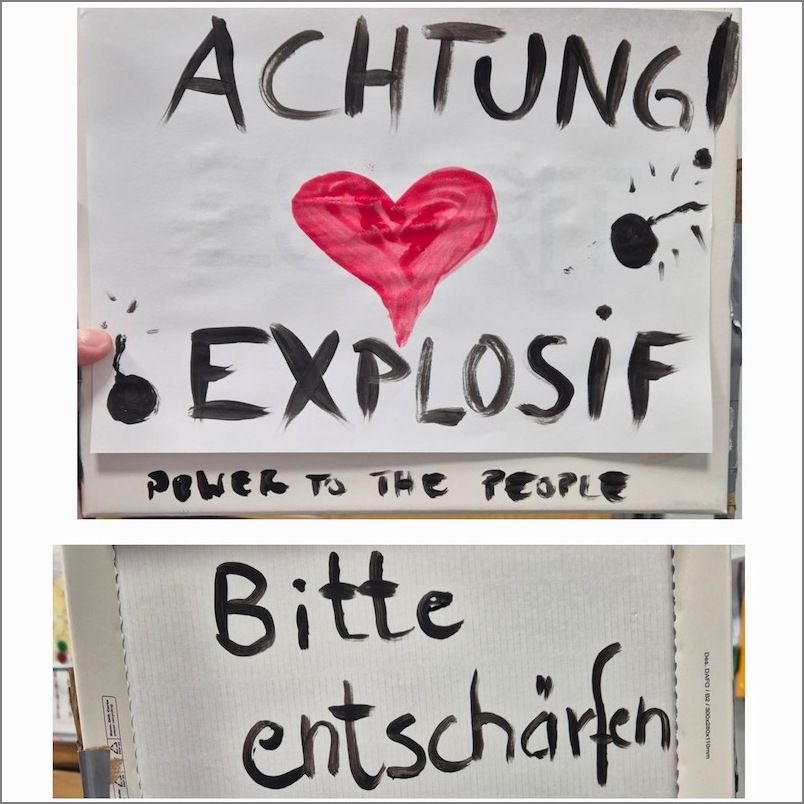 ACHTUNG!
EXPLOSIF
POWER TO THE PEOPLE
Bitte
entschärfen
Des. DAFO / B2 / 300x280x110mm